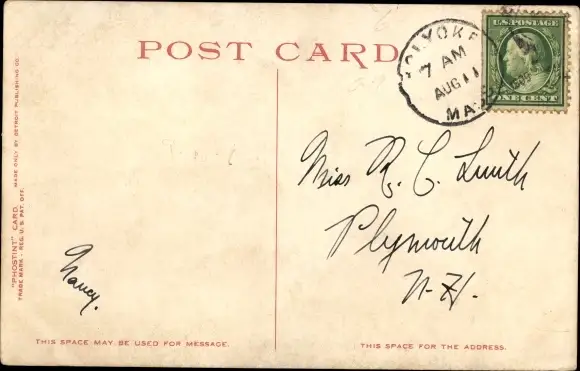 POST CARD
HOLYOKE
7 AM
AUG 11
MASS
U.S. POSTAGE
ONE CENT
"PHOSTINT" CARD. MADE ONLY BY DETROIT PUBLISHING CO.
TRADE MARK - REG. U. S. PAT. OFF.
Nancy.
Miss R. C. Smith
Plymouth
N. H.
THIS SPACE MAY BE USED FOR MESSAGE.
THIS SPACE FOR THE ADDRESS.